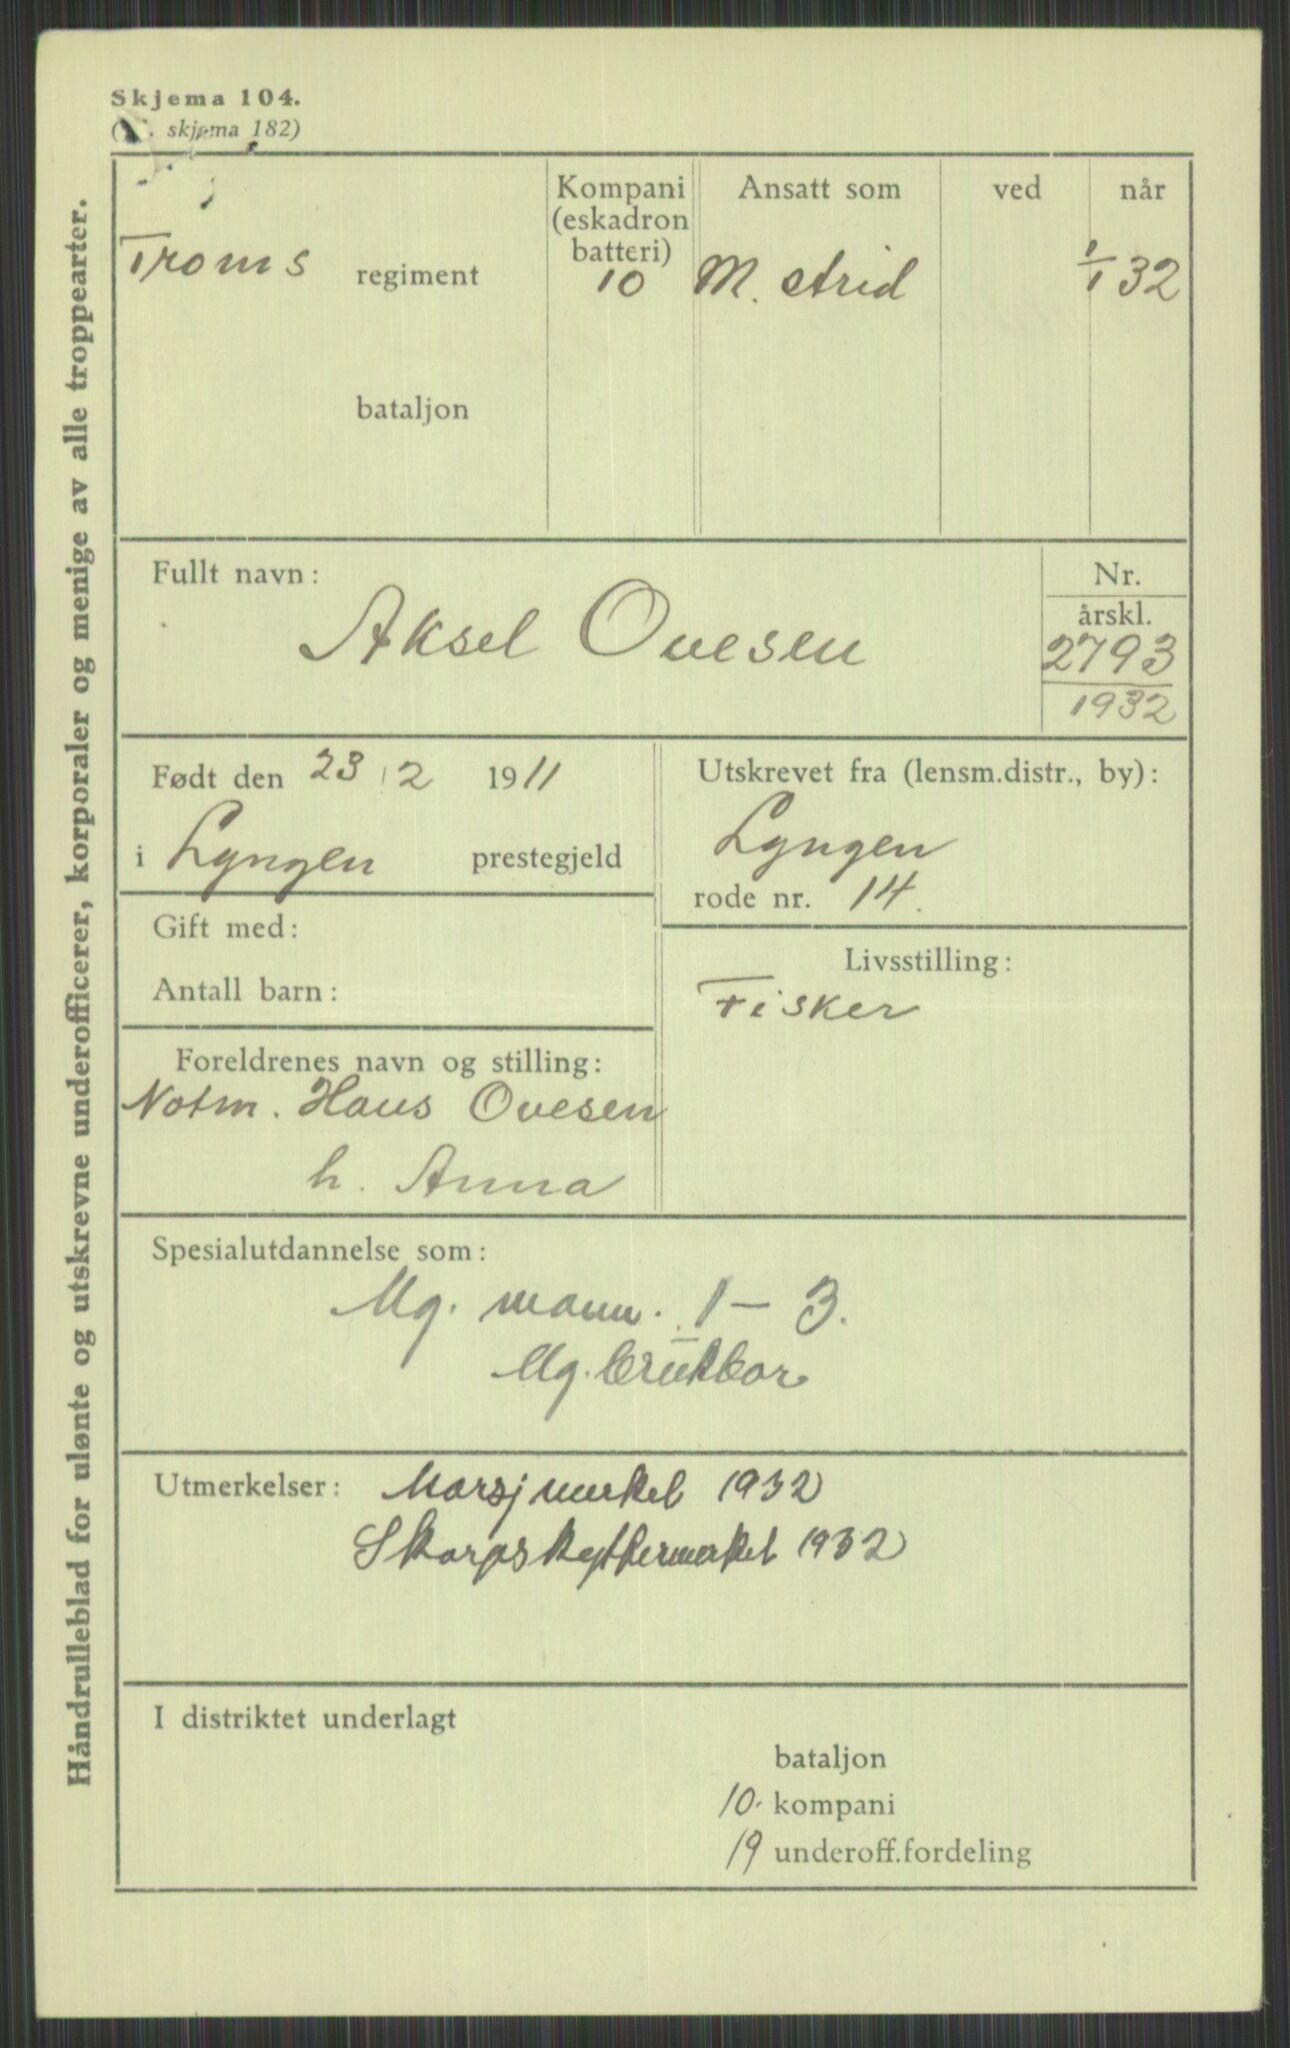 Skjema 104.
skjema 182)
Håndrulleblad for ulønte og utskrevne underofficerer, korporaler og menige av alle troppearter.
Troms regiment
bataljon
Kompani
(eskadron
batteri)
10
Ansatt som
M. strid
ved
når
1/1 32
Fullt navn:
Aksel Ovesen
Nr.
årskl.
2793
1932
Født den 23/2 1911
i Lyngen prestegjeld
Utskrevet fra (lensm.distr., by):
Lyngen
rode nr. 14.
Gift med:
Antall barn:
Livsstilling:
Fisker
Foreldrenes navn og stilling:
Notm. Hans Ovesen
h. Anna
Spesialutdannelse som:
Mg. mann. 1 – 3.
Mg.
Utmerkelser: Marsjmerket 1932
Skarpskyttermerket 1932
I distriktet underlagt
bataljon
10. kompani
19 underoff.fordeling